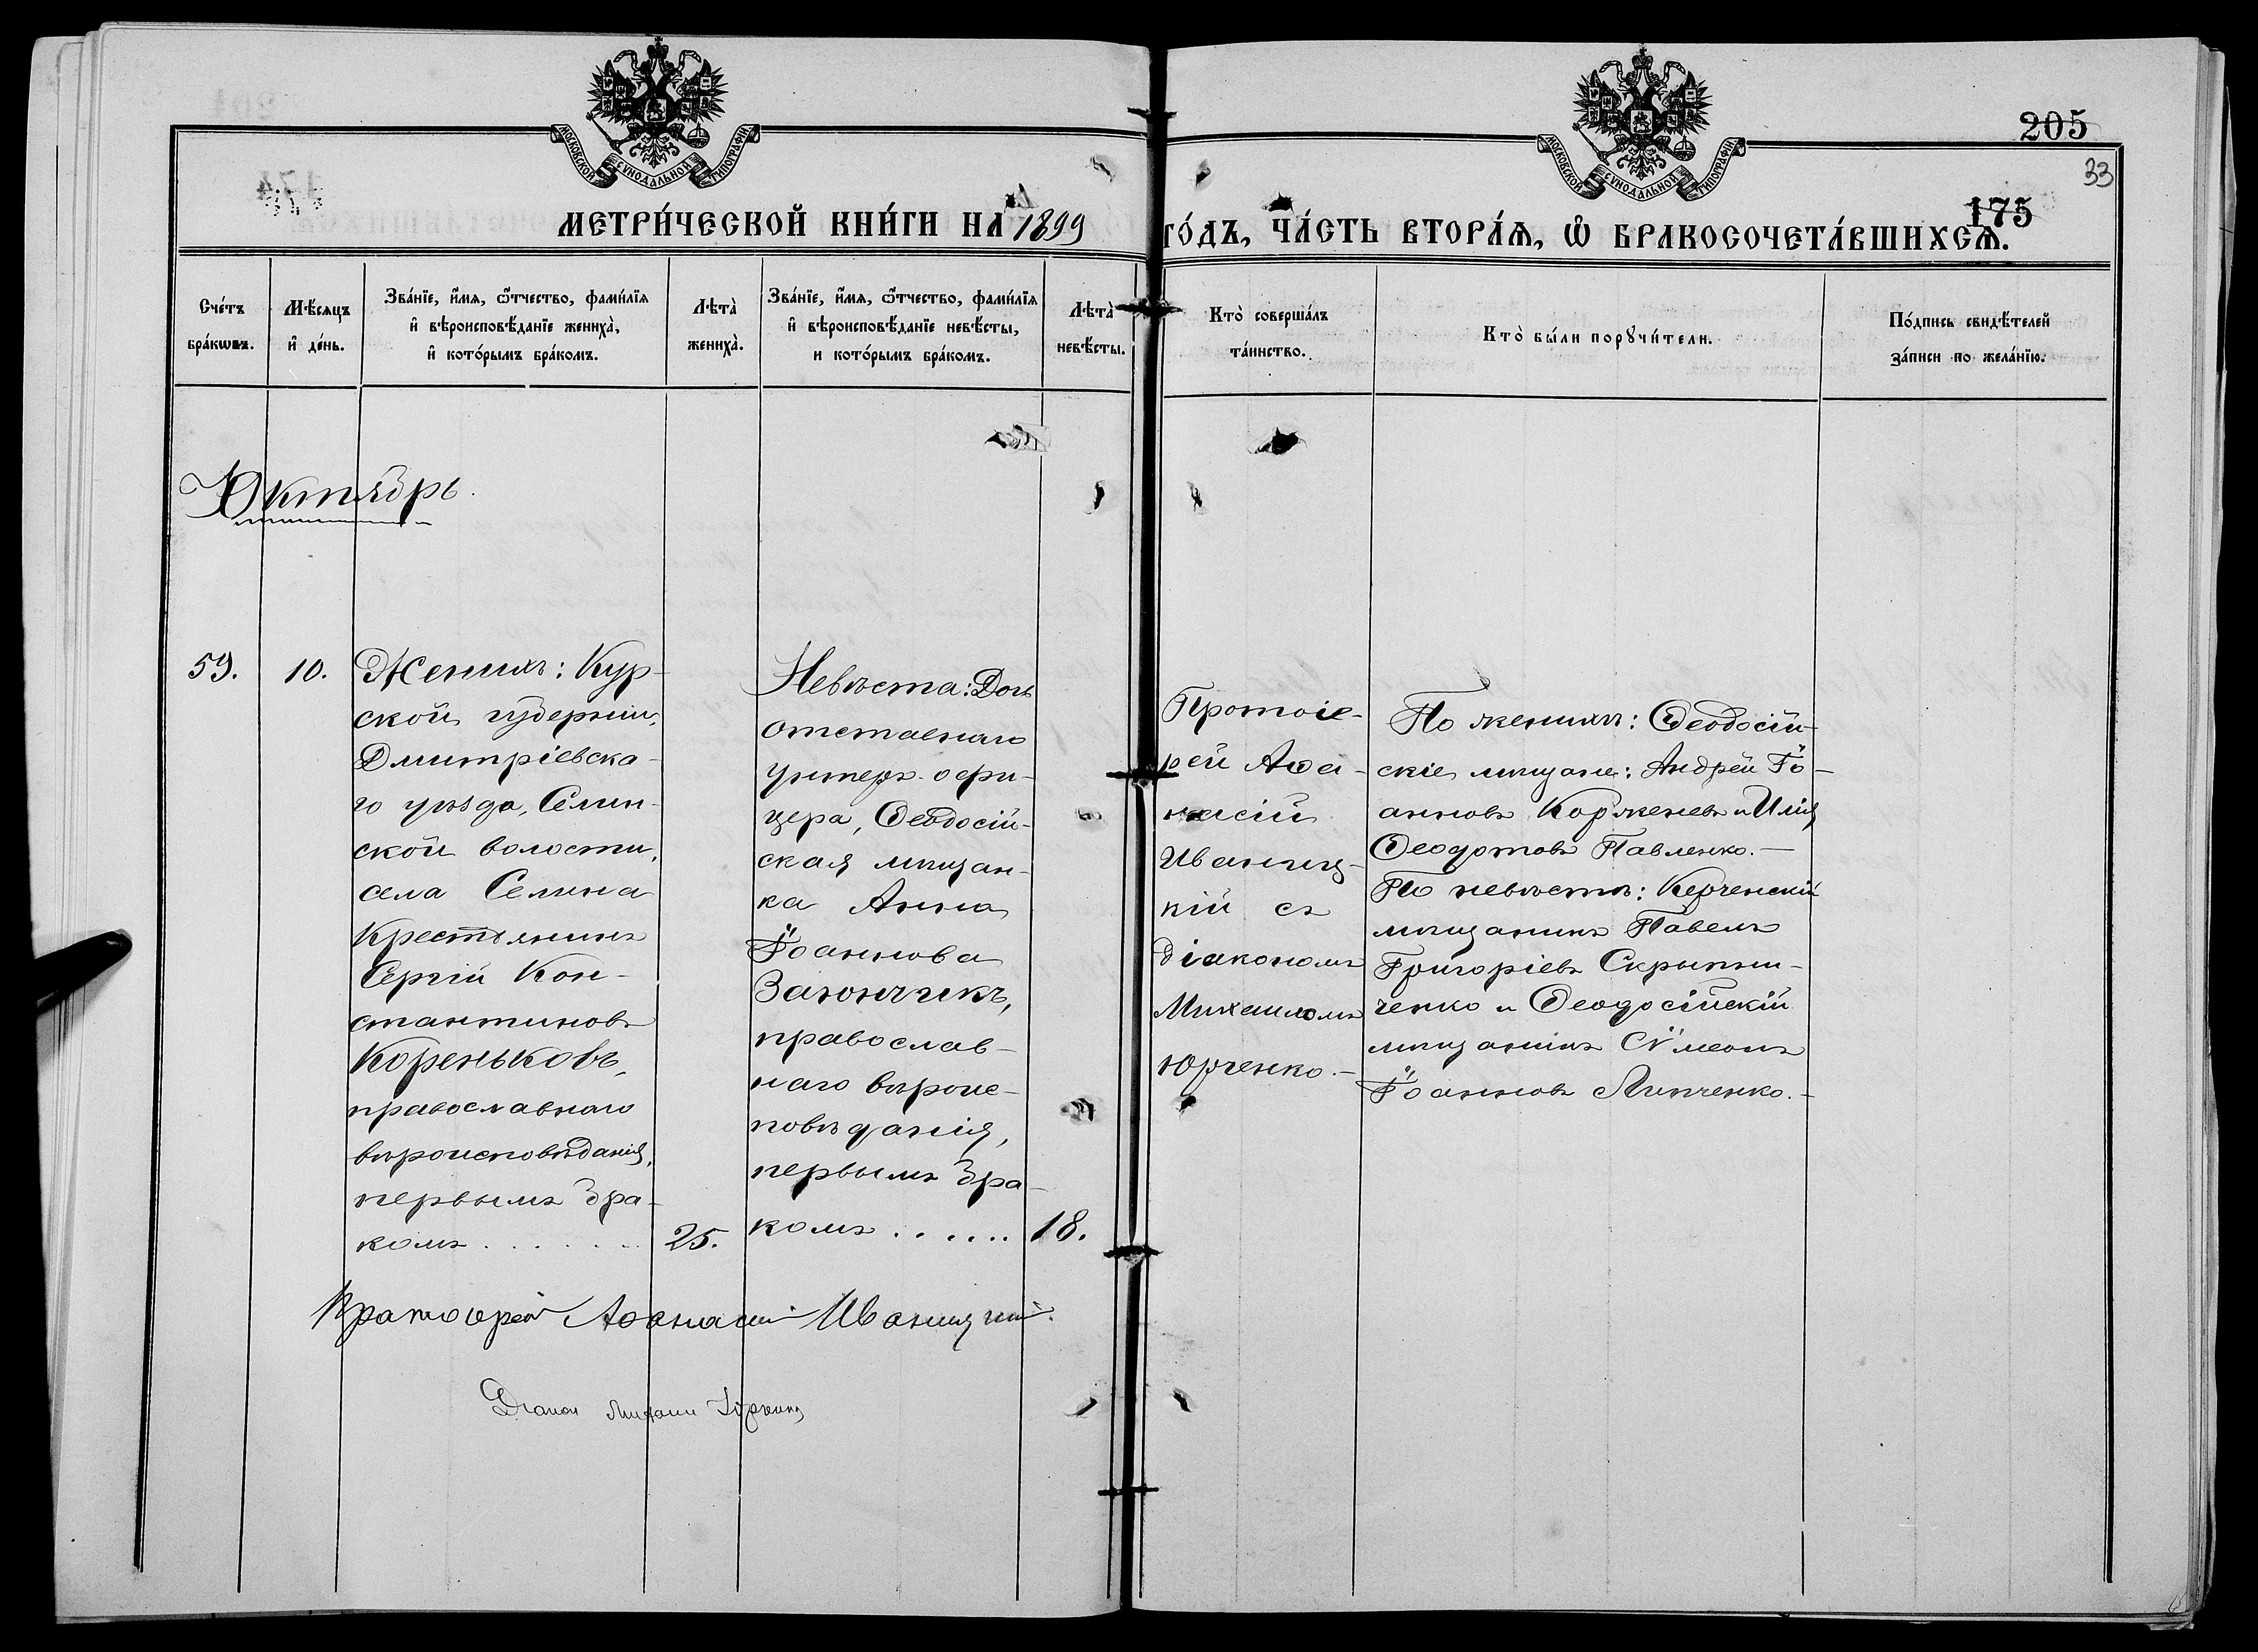 МОСКОВСКОЙ СѴНОДАЛЬНОЙ ТИПОГРАФІИ
МОСКОВСКОЙ СѴНОДАЛЬНОЙ ТИПОГРАФІИ
205
33
175
МЕТРИ́ЧЕСКОЙ КНИ́ГИ НА 1899
ГО́ДЪ, ЧА́СТЬ ВТОРА́Ѧ, Ѡ҆ БРАКОСОЧЕТА́ВШИХСѦ.
Сче́тъ
бра́кѡвъ.
Мѣ́сяцъ
и҆ де́нь.
Зва́нїе, и҆́мя, ѻ҆́тчество, фами́лїя
и҆ вѣроисповѣ́данїе жениха̀,
и҆ кото́рымъ бра́комъ.
Лѣта̀
жениха̀.
Зва́нїе, и҆́мя, ѻ҆́тчество, фами́лїя
и҆ вѣроисповѣ́данїе невѣ́сты,
и кото́рымъ бра́комъ.
Лѣта̀
невѣ́сты.
Кто̀ соверша́лъ
та́инство.
Кто̀ бы́ли порꙋчи́тели.
По́дпись свидѣ́телей
за́писи по жела́нїю.
Октябрь.
59.
10.
Женихъ: Кур-
ской губерніи,
Дмитріевска-
го уѣзда, Селин-
ской волости,
села Селина
крестьянинъ
Сергій Кон-
стантиновъ
Кореньковъ,
православнаго
вѣроисповѣданія,
первымъ бра-
комъ . . . . . . .
25.
Невѣста: Дочь
отставнаго
унтеръ-офи-
цера, Ѳеодосій-
ская мѣщан-
ка Анна
Іоаннова
Заіончикъ,
православ-
наго вѣроис-
повѣданія,
первымъ бра-
комъ . . . . . .
18.
Протоіе-
рей Аѳа-
насій
Иваниц-
кій съ
діакономъ
Михаиломъ
Юрченко.-
По женихѣ: Ѳеодосій-
скіе мѣщане: Андрей Іо-
анновъ Корженевъ и Илія
Ѳеодотовъ Павленко.-
По невѣстѣ: Керченскій
мѣщанинъ Павелъ
Григоріевъ Скрыпни-
ченко и Ѳеодосійскій
мѣщанинъ Сѵмеонъ
Іоанновъ Липченко.-
Протоіерей Аѳанасій Иваницкій.
Діаконъ Михаилъ Юрченко